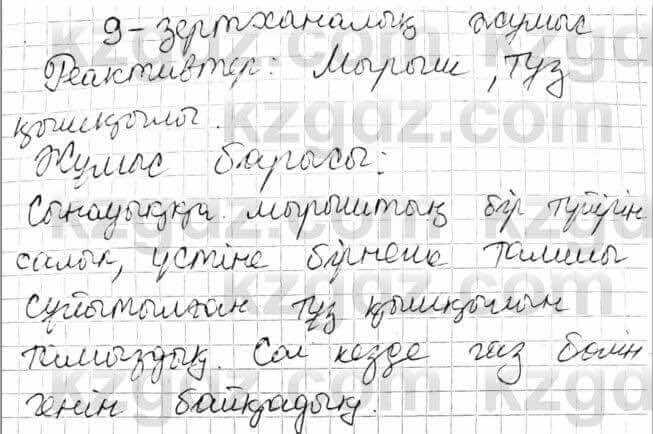 9-зертханалық жұмыс
Реактивтер: Мырыш, тұз
қышқылы.
Жұмыс барысы:
Сынауыққа мырыштың бір түйірін
салып, үстіне бірнеше тамшы
сұйытылған тұз қышқылын
тамыздық. Сол кезде газ бөлін
генін байқадық.
kzgdz.com